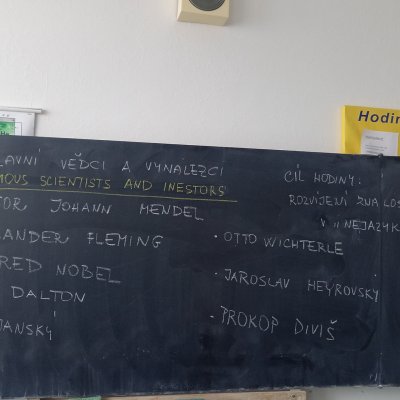 LAVNÍ VĚDCI A VYNÁLEZCI
MOUS SCIENTISTS AND INESTORS
TOR JOHANN MENDEL
ANDER FLEMING
RED NOBEL
DALTON
JANSKÝ
CÍL HODINY:
ROZVÍJENÍ ZNALOS
V "NEJAZYK
• OTTO WICHTERLE
• JAROSLAV HEYROVSKÝ
• PROKOP DIVIŠ
Hodin